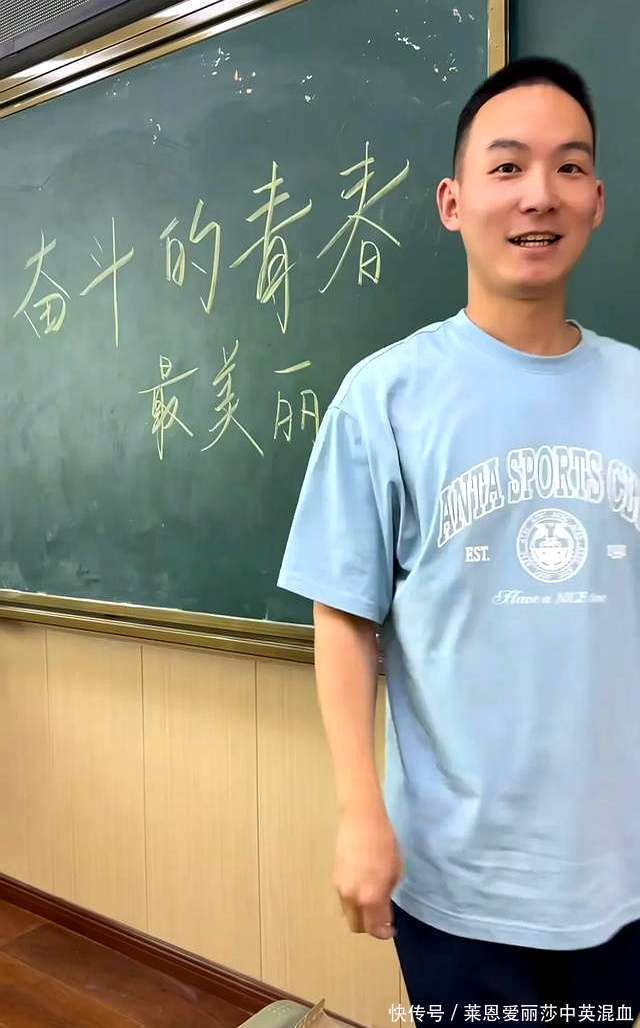 奋斗的青春
最美丽
ANTA SPORTS
EST.
Have a NICE time
快传号 / 莱恩爱丽莎中英混血